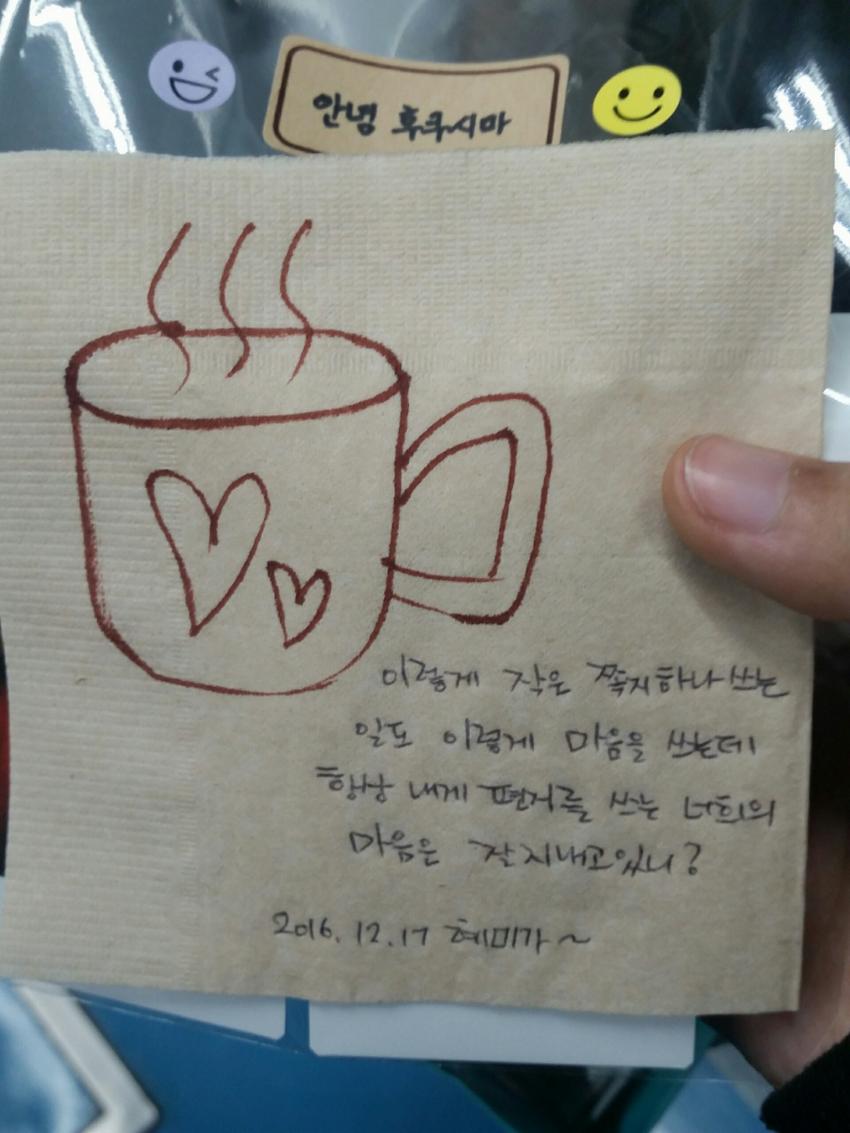 안녕 후쿠시마
이렇게 작은 쪽지하나 쓰는
일도 이렇게 마음을 쓰는데
항상 내게 편지를 쓰는 너희의
마음은 잘 지내고있니?
2016. 12. 17 혜미가~